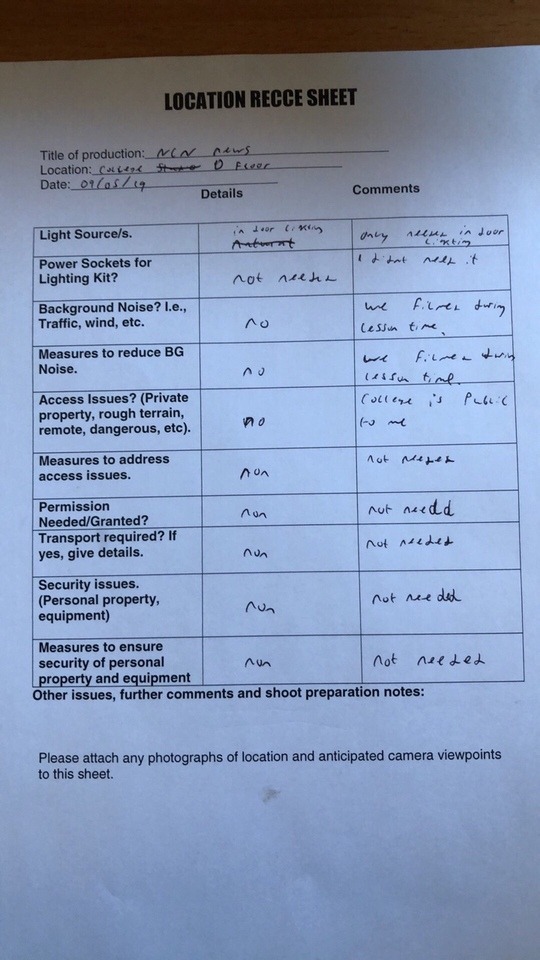 LOCATION RECCE SHEET
Title of production: NCN news
Location: College Studio D Floor
Date: 09/05/19
Details Comments
Light Source/s. in door lighting only needed in door
Natural lighting
Power Sockets for I didnt need it
Lighting Kit? not needed
Background Noise? I.e., we filmed during
Traffic, wind, etc. no lesson time.
Measures to reduce BG we filmed during
Noise. no lesson time.
Access Issues? (Private College is Public
property, rough terrain, no to me
remote, dangerous, etc).
Measures to address not needed
access issues. non
Permission non not needd
Needed/Granted?
Transport required? If not needed
yes, give details. non
Security issues.
(Personal property, non not needed
equipment)
Measures to ensure
security of personal non not needed
property and equipment
Other issues, further comments and shoot preparation notes:
Please attach any photographs of location and anticipated camera viewpoints
to this sheet.